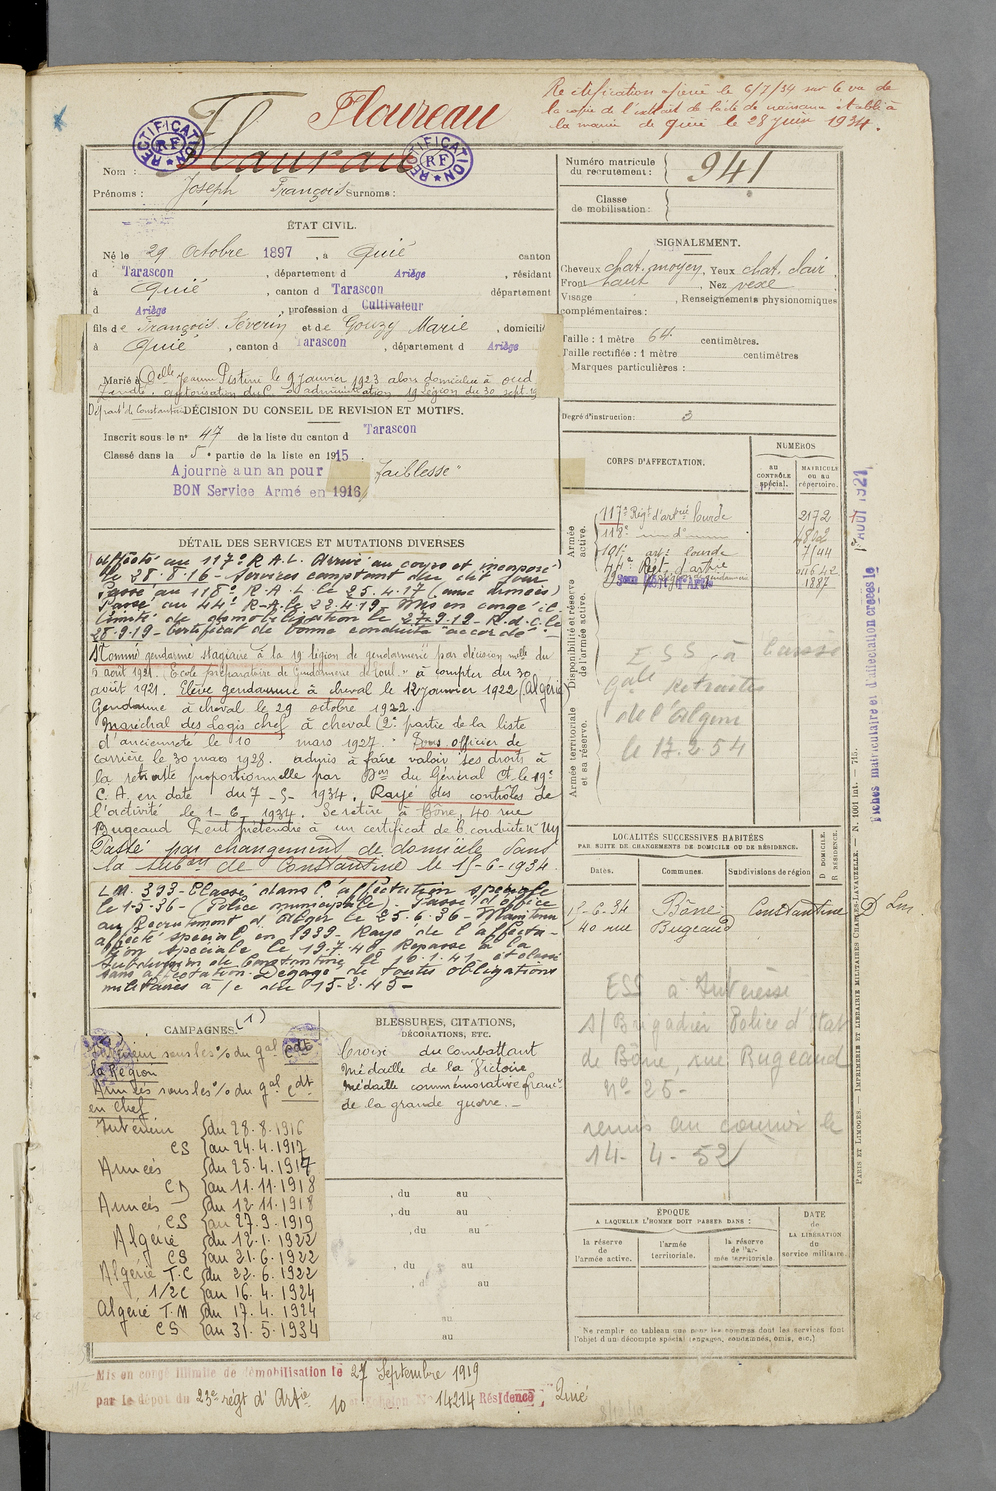 Floureau
Rectification opérée le 6/7/34 sur le vu de
la copie de l'extrait de l'acte de naissance établi à
la mairie de Quié le 28 juin 1934.
RECTIFICATION RF
RECTIFICATION RF
Nom : Flaureau
Prénoms : Joseph François Surnoms :
Numéro matricule du recrutement : 941
Classe de mobilisation :
ÉTAT CIVIL.
Né le 29 Octobre 1897, à Quié canton
d Tarascon, département d Ariège, résidant
à Quié, canton d Tarascon département
d Ariège, profession d Cultivateur
fils de François Séverin et de Gouzy Marie, domicilié
à Quié, canton d Tarascon, département d Ariège
Marié à Delle Jeanne Pistini le 9 janvier 1923 alors domiciliée à oued
autorisation du C. d'administration 19 Légion du 30 sept.
Départ. de Constantine
SIGNALEMENT.
Cheveux chat. moyen, Yeux chat. clair,
Front haut, Nez vexe
Visage , Renseignements physionomiques
complémentaires :
Taille : 1 mètre 64 centimètres.
Taille rectifiée : 1 mètre centimètres
Marques particulières :
Degré d'instruction : 3
DÉCISION DU CONSEIL DE REVISION ET MOTIFS.
Inscrit sous le n° 47 de la liste du canton d Tarascon
Classé dans la 5e partie de la liste en 1915.
Ajourné a un an pour "faiblesse"
BON Service Armé en 1916
DÉTAIL DES SERVICES ET MUTATIONS DIVERSES
Affecté au 117e R.A.L. Arrivé au corps et incorporé
le 28.8.16 - Services comptant du dit jour
Passé au 118e R.A.L. le 25.4.17 (aux armées)
Passé au 44e R.A. le 22.4.19. Mis en congé il
limité de démobilisation le 27.9.19 - R.d.c. le
28.9.19 - Certificat de bonne conduite "accordé"
Nommé gendarme stagiaire à la 19 légion de gendarmerie par décision mlle du
5 août 1921. Ecole préparatoire de Gendarmerie de Toul. " à compter du 30
août 1921. Elève gendarme à cheval le 12 janvier 1922 (Algérie)
Gendarme à cheval le 29 octobre 1922.
Maréchal des Logis chef à cheval (2e partie de la liste
d'ancienneté le 10 mars 1927. Sous officier de
carrière le 30 mars 1928. admis à faire valoir ses droits à
la retraite proportionnelle par Don du Général Ct. le 19e
C.A. en date du 7-5-1934. Rayé des contrôles de
l'activité le 1-6-1934. Se retire à Bône, 40 rue
Bugeaud Peut prétendre à un certificat de b. conduite
Passé par changement de domicile dans
la subon de Constantine le 15-6-1934.
L.M. 393 - Classé dans l'affectation spéciale
le 1-5-36 - (Police municipale) - Passé d'office
au Recrutement d'Alger le 25.6.36 - Maintenu
affecté spécial en 1939 - Rayé de l'affecta-
tion spéciale le 19.7.40. Repassé à la
Subdivision de Constantine le 16.1.41 et classé
sans affectation. Dégagé de toutes obligations
militaires à/c du 15-2-45 -
CORPS D'AFFECTATION.
NUMÉROS
au contrôle spécial.
matricule ou au répertoire.
Armée active.
Disponibilité et réserve de l'armée active.
Armée territoriale et sa réserve.
117e Régt d'artrie lourde 2172
118e d°
191e art. lourde 7/44
44e Rgt d'artrie
1887
ESS à
Gale Retraites
de l'Algérie
le 17.2.54
1er AOUT 1921
Fiches matriculaire et d'affectation créées le
LOCALITÉS SUCCESSIVES HABITÉES
PAR SUITE DE CHANGEMENTS DE DOMICILE OU DE RÉSIDENCE.
Dates. Communes. Subdivisions de région
D. DOMICILE. R. RÉSIDENCE.
15-6-34 Bône Constantine D
40 rue Bugeaud
ESS à Intéressé
s/Brigadier Police d'Etat
de Bône, rue Bugeaud
N° 25 -
remis au courrier le
14 - 4 - 52
PARIS ET LIMOGES. — IMPRIMERIE ET LIBRAIRIE MILITAIRES CHARLES-LAVAUZELLE. — N. 1001 int. — 715.
CAMPAGNES. (1)
Intérieur sous les % du gal Cdt
la Région
Armées sous les % du gal Cdt
en chef
Intérieur du 28.8.1916
CS au 24.4.1917
Armées du 25.4.1917
CD au 11.11.1918
Armées du 12.11.1918
CS au 27.9.1919
Algérie du 12.1.1922
CS au 21.6.1922
Algérie T.C du 22.6.1922
1/2C au 16.4.1924
Algérie T.M du 17.4.1924
CS au 31.5.1934
BLESSURES, CITATIONS,
DÉCORATIONS, ETC.
Croix du Combattant
Médaille de la Victoire
Médaille commémorative franc
de la grande guerre. -
, du au
, du au
, du au
, du au
, d au
au
au
ÉPOQUE
A LAQUELLE L'HOMME DOIT PASSER DANS :
la réserve de l'armée active.
l'armée territoriale.
la réserve de l'armée territoriale.
DATE de LA LIBÉRATION du service militaire.
Ne remplir ce tableau que pour les hommes dont les services font
l'objet d'un décompte spécial (engagés, condamnés, omis, etc.)
Mis en congé illimité de démobilisation le 27 Septembre 1919
par le dépôt du 23e régt d'Artie 10 échelon N° 14214 Résidence, Quié